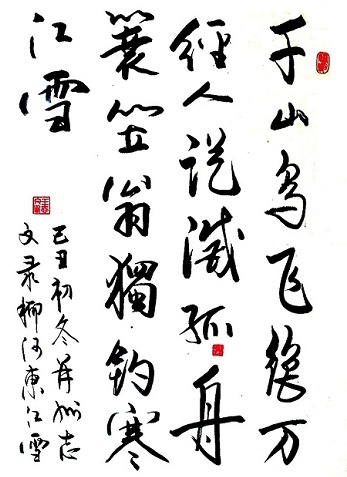 千山鸟飞绝万
径人踪滅孤舟
蓑笠翁獨钓寒
江雪
己丑初冬并州志
文录柳河東江雪